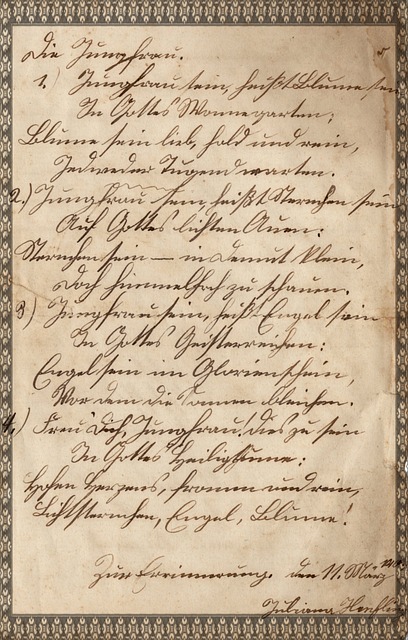 Die Jungfrau.
1.) Jungfrau sein, heißt Blume sein
In Gottes Wonnegarten;
Blume sein lieb, hold und rein,
Jedweder Tugend warten.
2.) Jungfrau sein, heißt Sternchen sein
Auf Gottes lichten Auen:
Sternchen sein — in Demut klein,
Doch himmelhoch zu schauen.
3) Jungfrau sein, heißt Engel sein
In Gottes Geisterreichen:
Engel sein im Glorienschein,
Vor dem die Sonnen bleichen.
4.) Freu Dich, Jungfrau! dies zu sein
In Gottes Heiligtume:
Hohen Herzens, fromm und rein,
Lichtsternchen, Engel, Blume!
Zur Erinnerung. den 11. März
Juliana